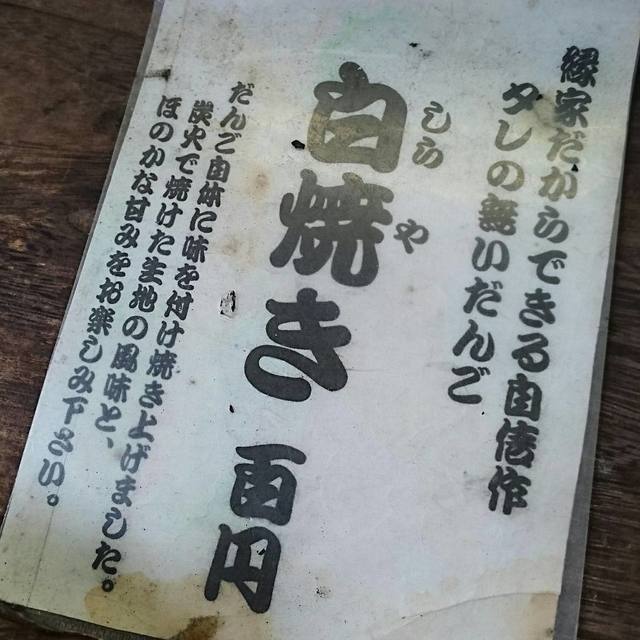 縁家だからできる自信作
タレの無いだんご
白焼き 百円
しらや
だんご自体に味を付け焼き上げました。
炭火で焼けた生地の風味と、
ほのかな甘みをお楽しみ下さい。